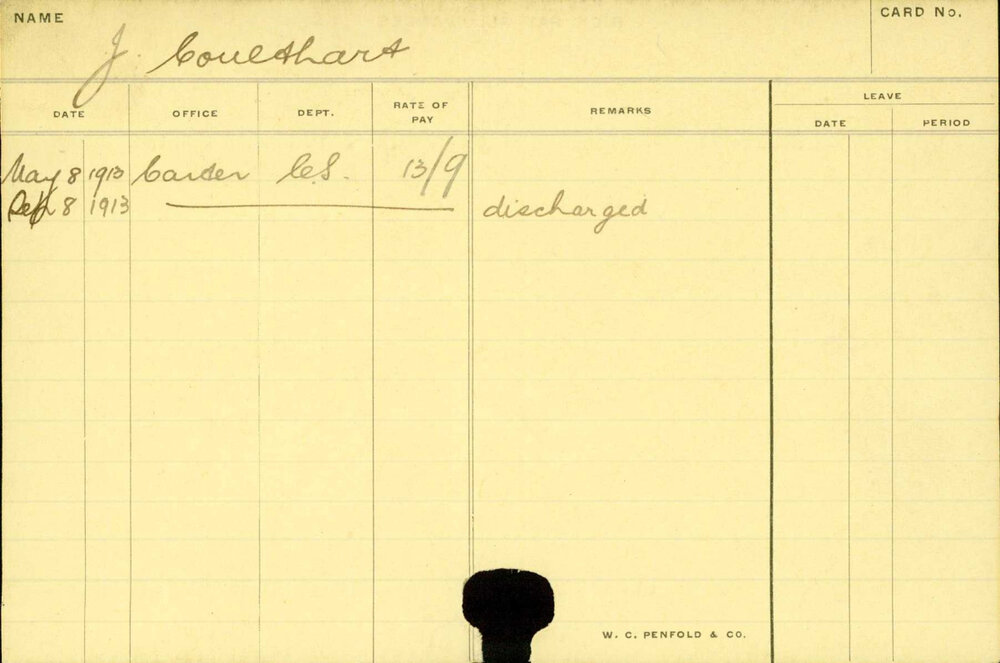 NAME J. Coulthart CARD No.
DATE OFFICE DEPT. RATE OF PAY REMARKS LEAVE
DATE PERIOD
May 8 1913 Carter C.S. 13/9
Sep 8 1913 discharged
W. C. PENFOLD & CO.